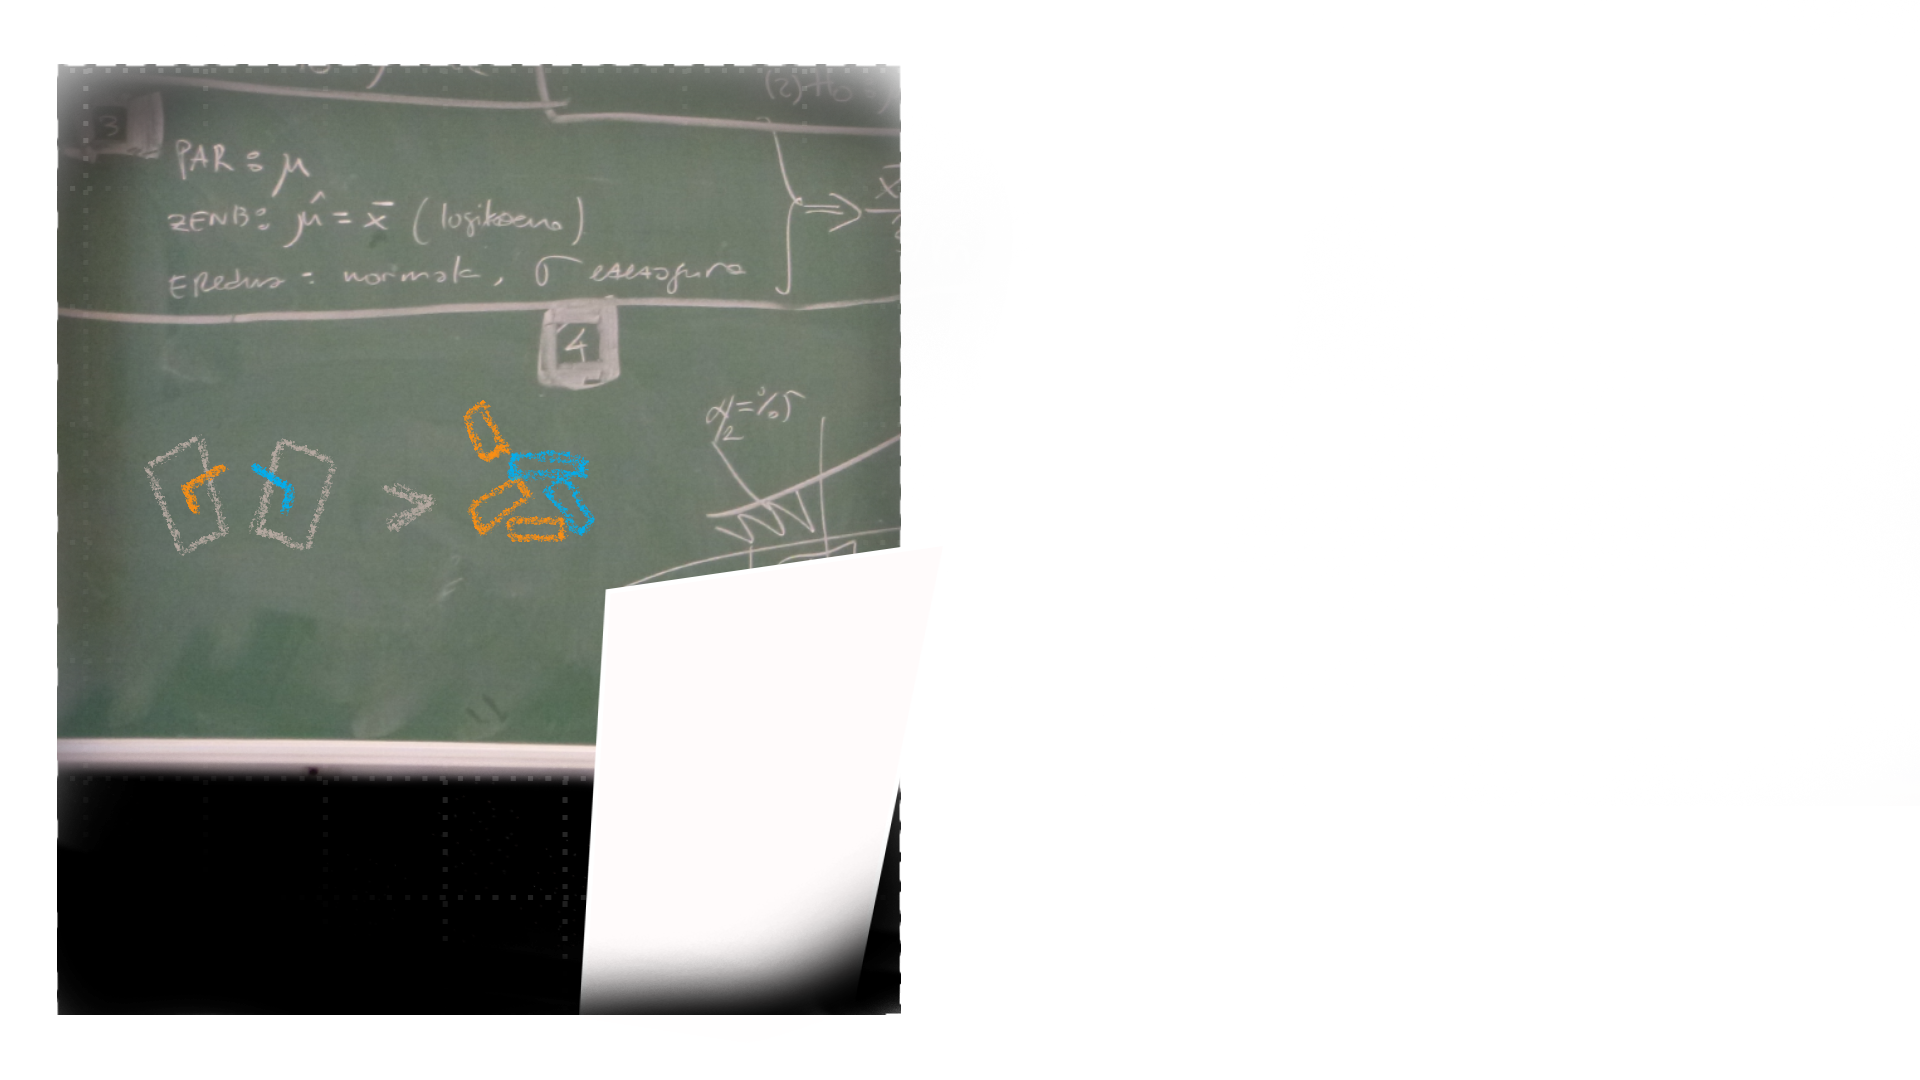 3
PAR: μ
ZENB: μ̂ = x̄ (logikoena)
EREDUA: normala, σ ezezaguna
⇒ x̄
4
α/2 = %5
>